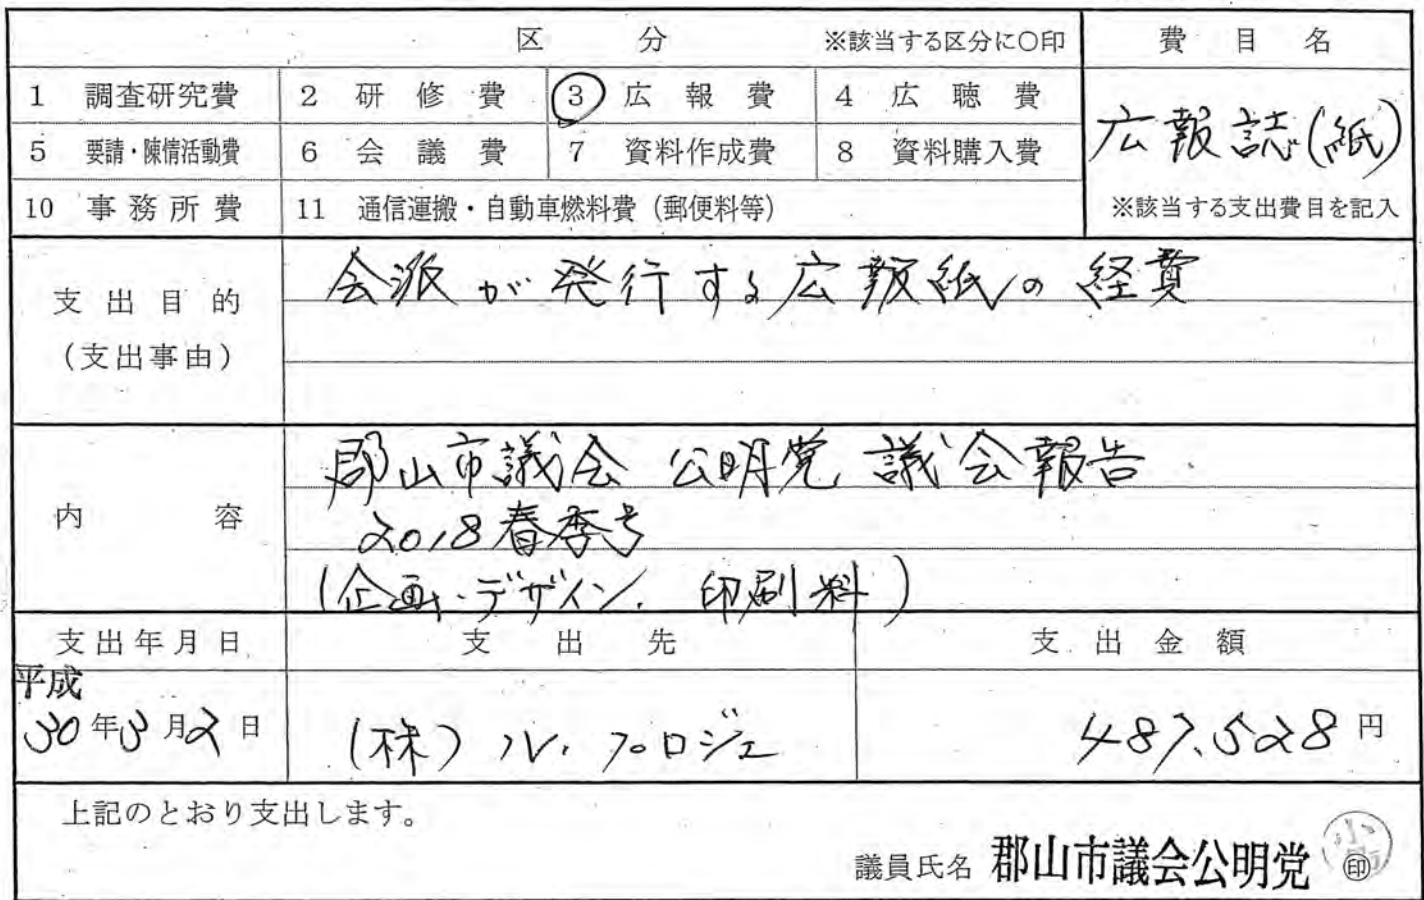 区分 ※該当する区分に○印 費目名
1 調査研究費 2 研修費 3 広報費 4 広聴費
広報誌(紙)
5 要請・陳情活動費 6 会議費 7 資料作成費 8 資料購入費
10 事務所費 11 通信運搬・自動車燃料費(郵便料等) ※該当する支出費目を記入
支出目的
(支出事由)
会派が発行する広報紙の経費
内容
郡山市議会 公明党 議会報告
2018春季号
(企画・デザイン、印刷料)
支出年月日 支出先 支出金額
平成
30年3月2日 (株)ル・プロジェ 487,528円
上記のとおり支出します。
議員氏名 郡山市議会公明党 印